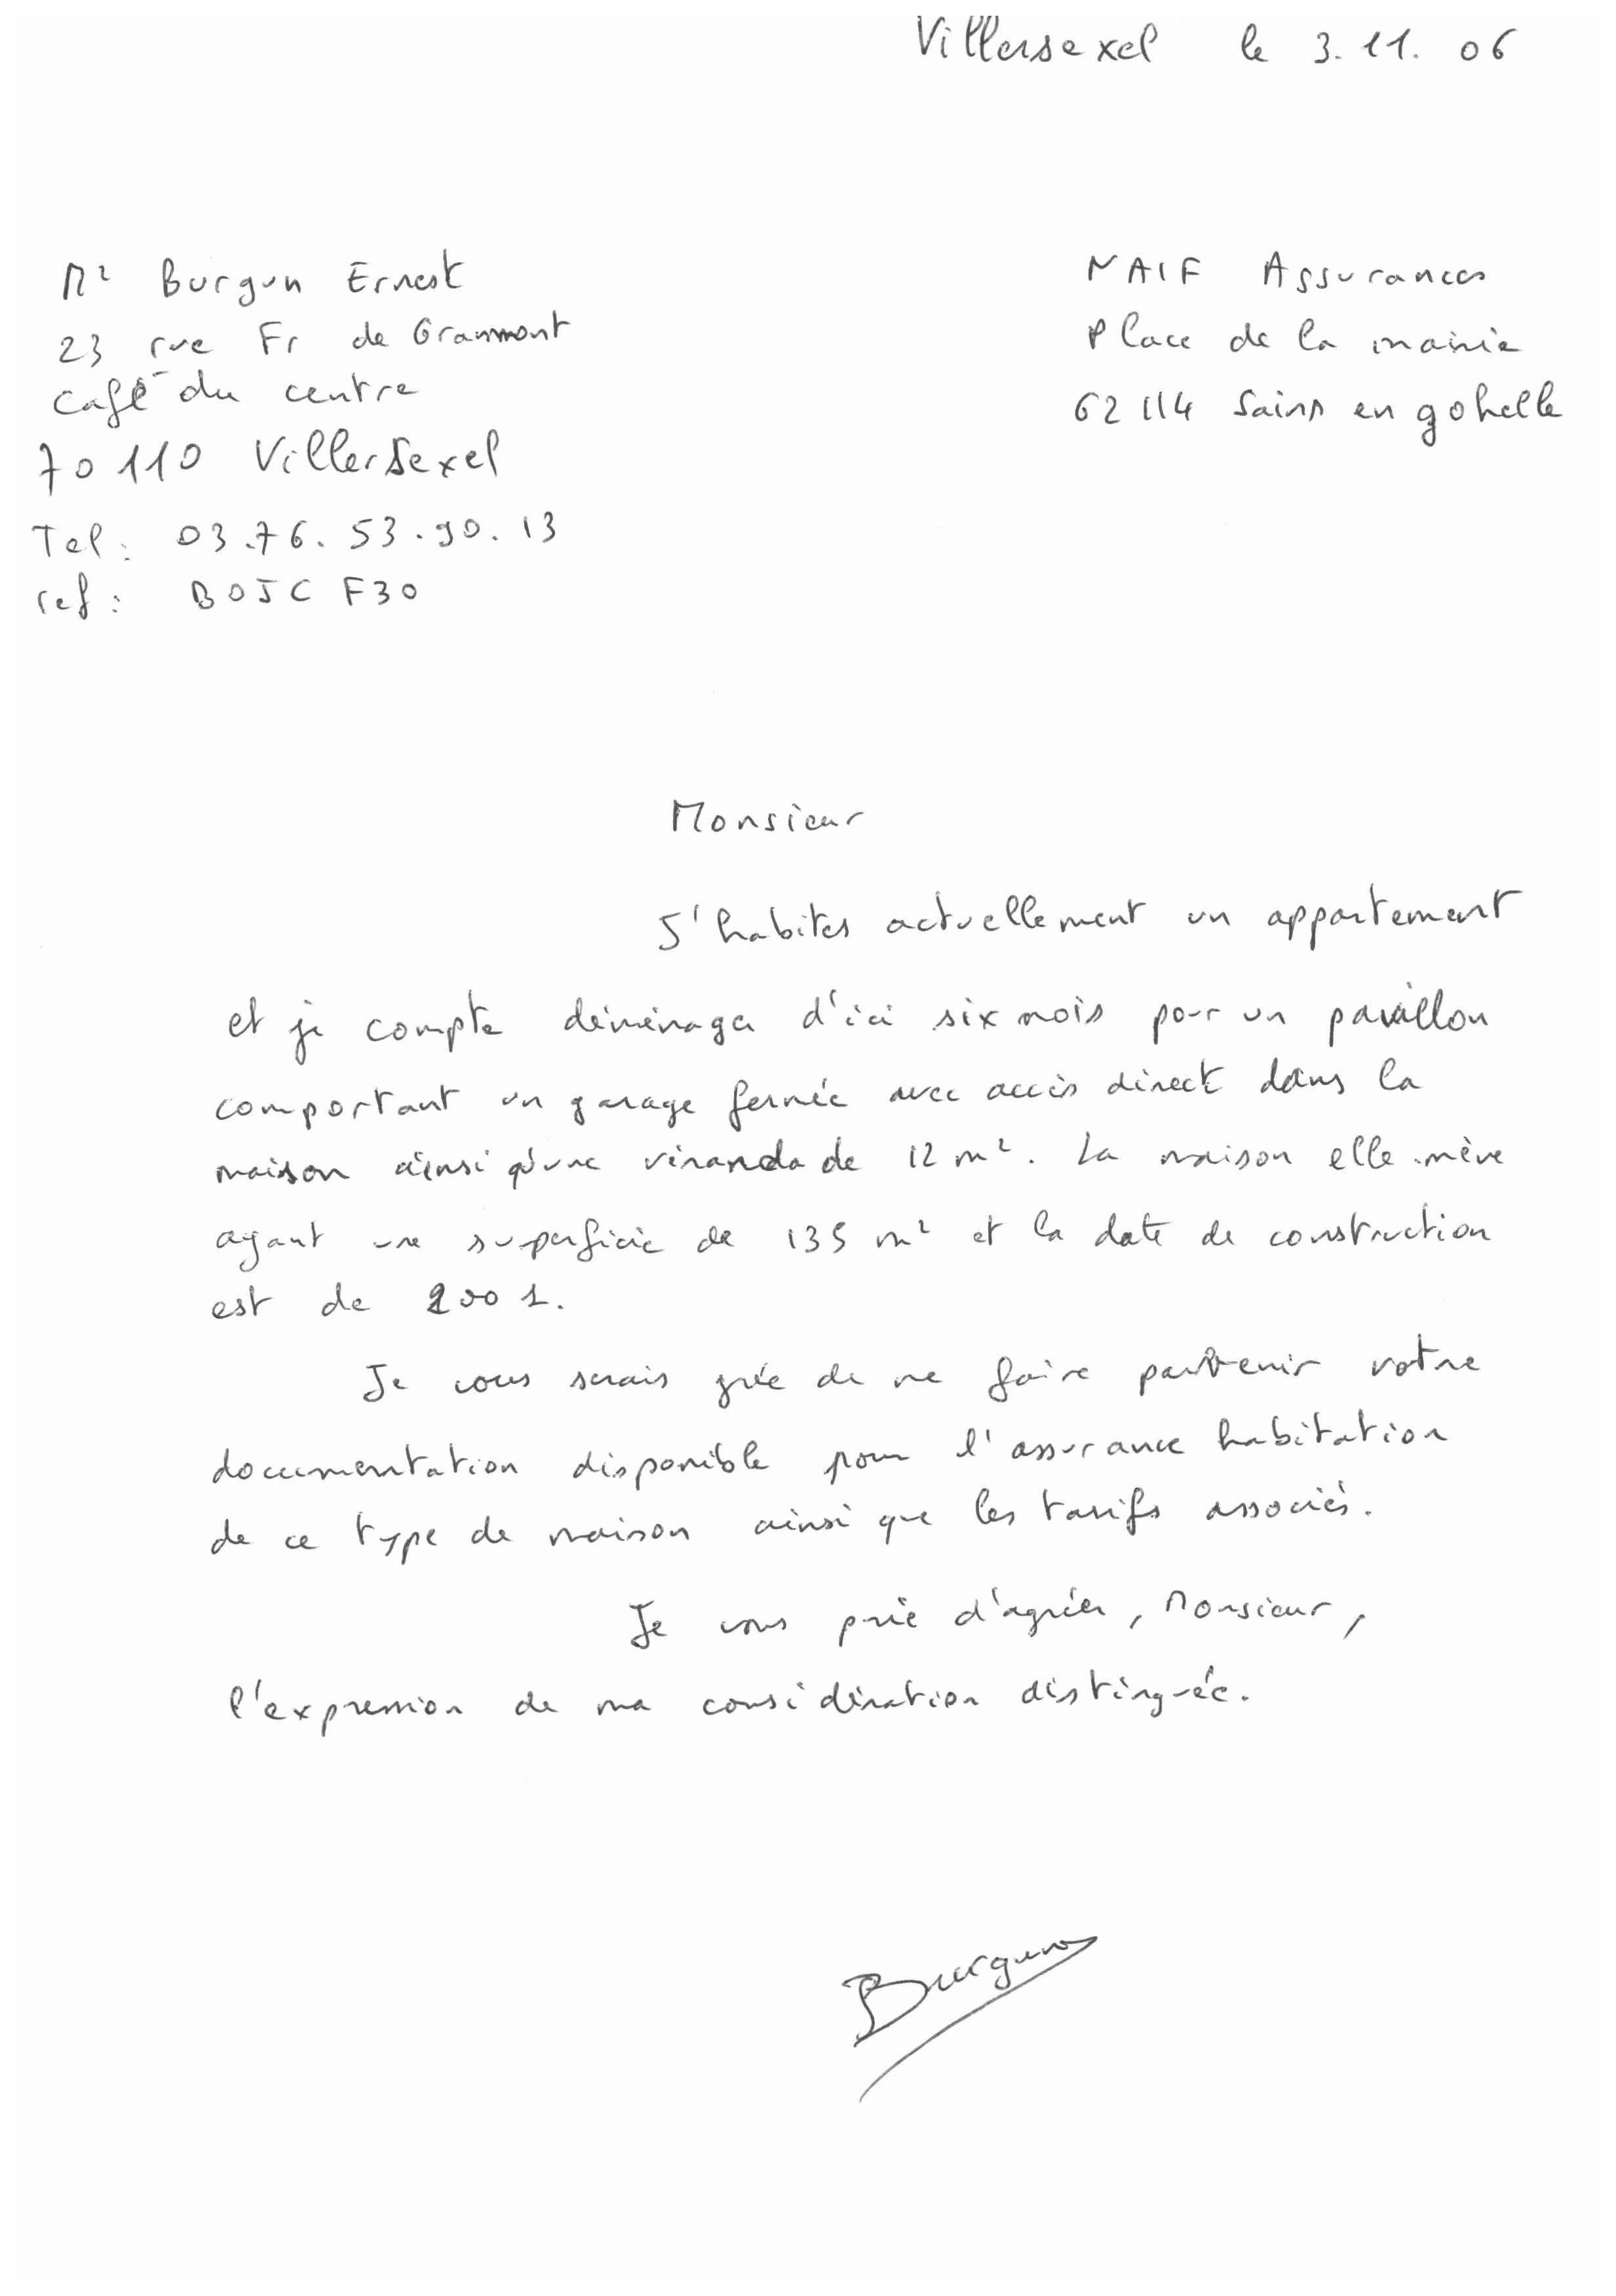 Villersexel le 3.11.06
Mr Burgun Ernest
23 rue Fr de Grammont
Café du centre
70110 Villersexel
Tel : 03.76.53.90.13
ref : BOJC F30
MAIF Assurances
Place de la mairie
62114 Sains en gohelle
Monsieur
J'habites actuellement un appartement
et je compte déménager d'ici six mois pour un pavillon
comportant un garage fermée avec accès direct dans la
maison ainsi qu'une véranda de 12 m². La maison elle-même
ayant une superficie de 135 m² et la date de construction
est de 2001.
Je vous serais grée de me faire parvenir votre
documentation disponible pour l'assurance habitation
de ce type de maison ainsi que les tarifs associés.
Je vous prie d'agréer, Monsieur,
l'expression de ma considération distinguée.
Burgun